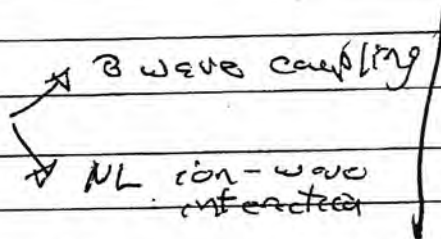 3 wave coupling
NL ion-wave
interaction